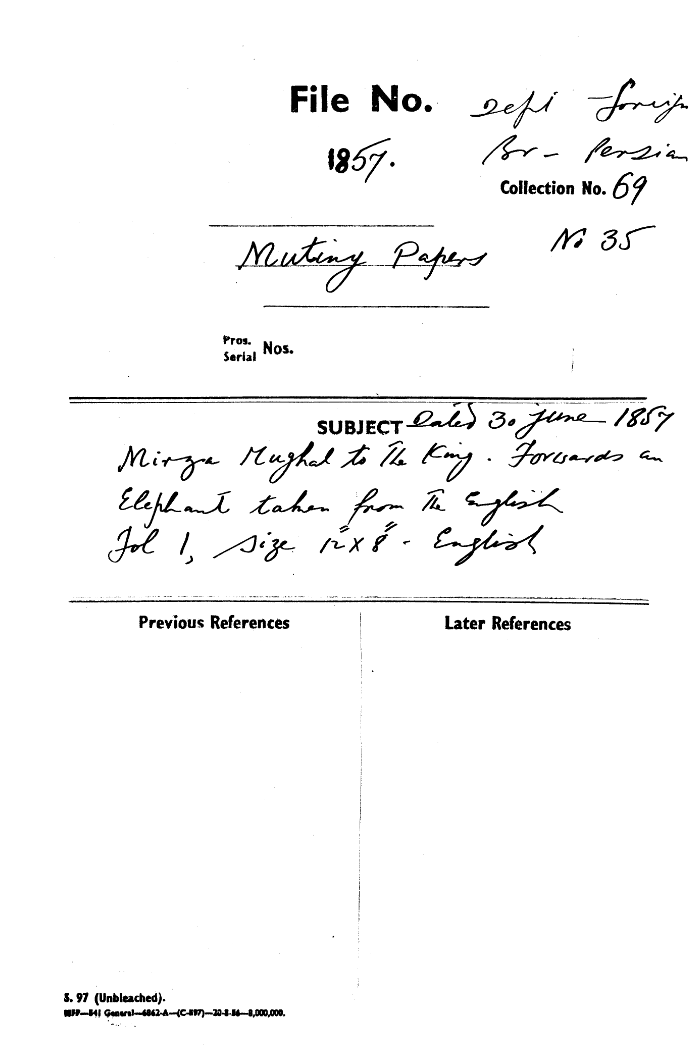 File No. Dept - Foreign
1857. Br - Persian
Collection No. 69
Mutiny Papers No 35
Pros.
Serial Nos.
SUBJECT Dated 30 June 1857
Mirza Mughal to The King. Forwards an
Elephant taken from The English
Fol 1, size 12" x 8" - English
Previous References Later References
S. 97 (Unbleached).
General—6862-A—(C-897)—20-8-56—8,000,000.